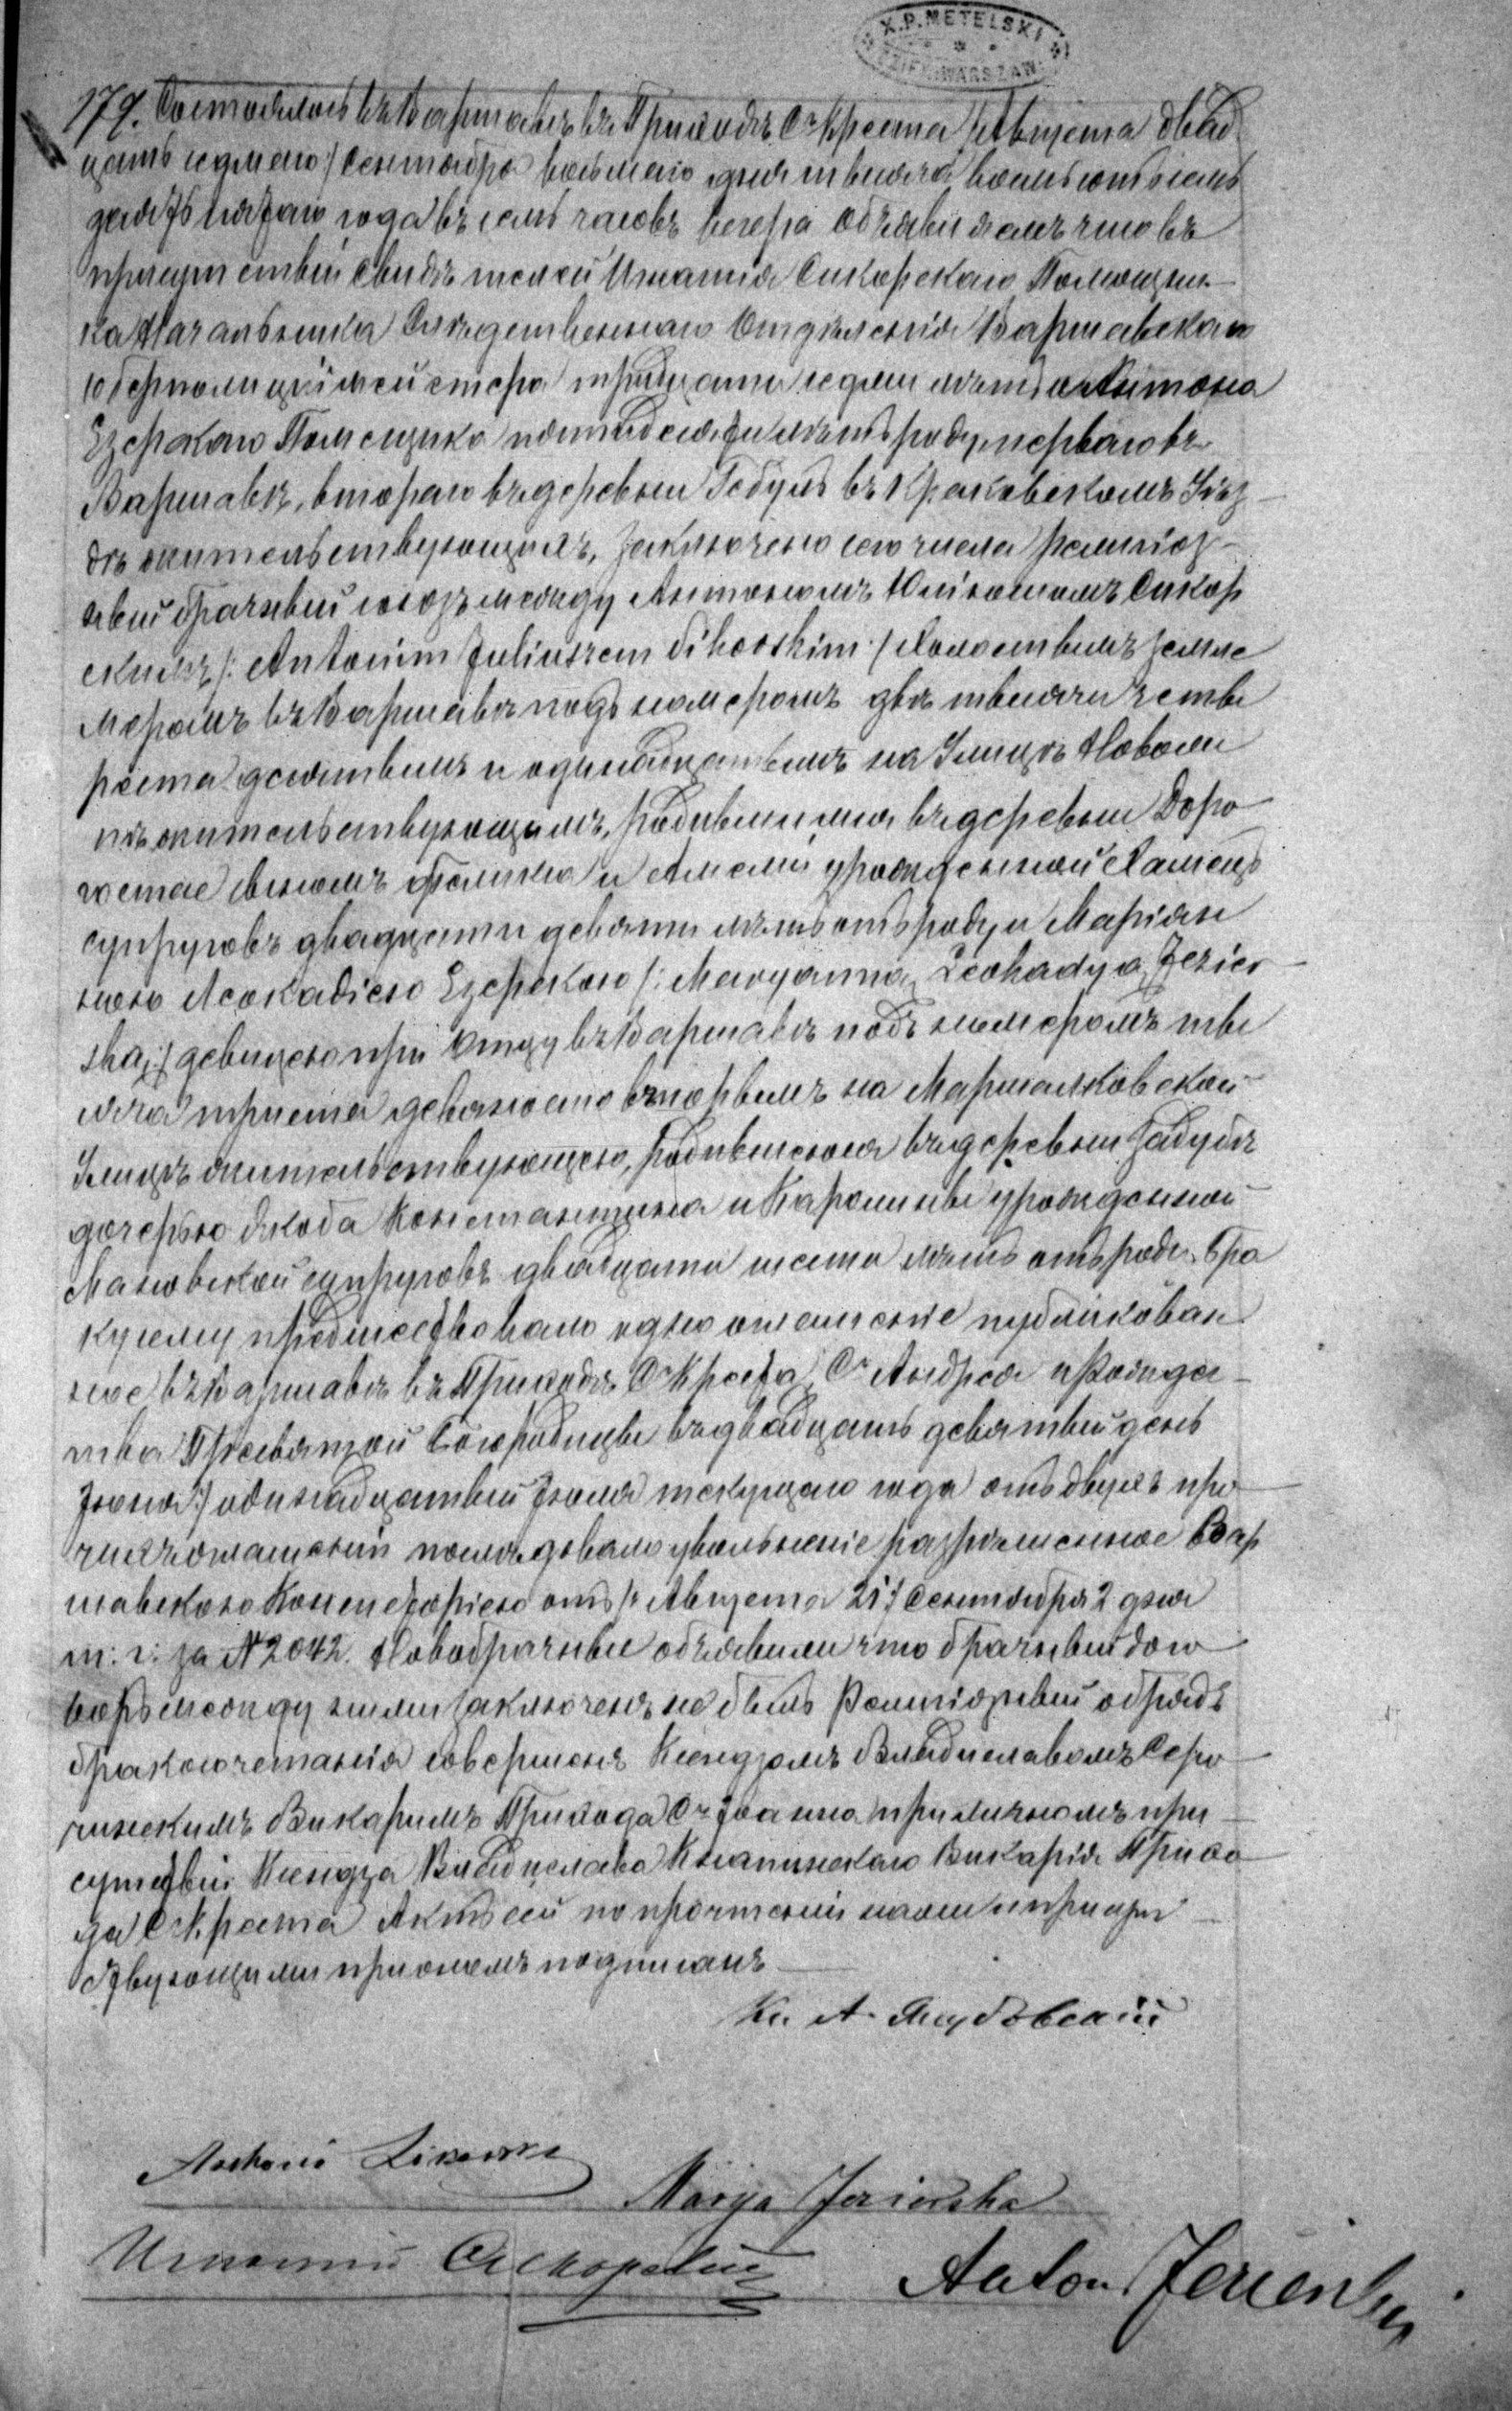 X.P. METELSKI
WARSZAW
179. Состоялось въ Варшавѣ въ Приходѣ Св Креста /: Августа двад
цать седьмаго /: Сентября восьмаго дня тысяча восемьсотъ семь
десятъ пятаго года въ семь часовъ вечера Объявляемъ что въ
присутствіи свидѣтелей Игнатія Сикорскаго Помощни-
ка Начальника Слѣдственнаго Отдѣленія Варшавскаго
Оберполиціймейстера тридцати седми лѣтъ и Антона
Езерскаго Помещика пятидесяти лѣтъ роду, перваго въ
Варшавѣ, втораго въ деревни въ Уѣз-
дѣ жительствующихъ, заключено сего числа религіоз-
ный брачный союзъ между Антономъ Юліюшомъ Сикор
скимъ /: Antonim Juliuszem Sikorskim :/ Холостымъ земле
меромъ въ Варшавѣ подъ номеромъ двѣ тысячи четы
реста десятымъ и одинадцатымъ на Улицѣ Новоли
пѣ жительствующимъ, родившимся въ деревни Доро
гостае сыномъ Феликса и Амеліи урожденной
супруговъ двадцати девяти лѣтъ отъ роду и Маріян
ною Леокадіею Езерскою /: Maryanną Leokadyą Jezier
ską :/ девицею при Отцу въ Варшавѣ подъ номеромъ ты
сяча триста девяносто вторымъ на Маршалковской
Улицѣ жительствующею, родившеюся въ деревни
дочерью Якоба Константина и Каролины урожденной
Маковской супруговъ двадцати шести лѣтъ отъ роду. Бра
ку сему предшествовало одно оглашеніе публикован
ное въ Варшавѣ въ Приходѣ Св Креста, Св Андрея и Рождес-
тва Пресвятой Богородицы въ двадцать девятый день
Іюня :/ одинадцатый Іюля текущаго года отъ двухъ про
чихъ оглашеній послѣдовало увольненіе разрѣшенное Вар
шавскою Консисторіею отъ /: Августа 21 :/ Сентября 2 дня
т: г: за N 2042. Новобрачные объявили что брачный дого
воръ между ними заключенъ не былъ Религіозный обрядъ
бракосочетанія совершенъ Ксендзомъ Владиславомъ Серо
чинскимъ Викаримъ Прихода Св Іоанна при личномъ при
сутствіи Ксендза Владислава Кнапинскаго Викарія Прихо
да Св Креста Актъ сей по прочтеніи нами и присут
ствующими при ономъ подписанъ
Кс. А. Якубовскій
Antoni Sikorski
Marya Jezierska
Игнатій Сикорскій
Anton Jezierski